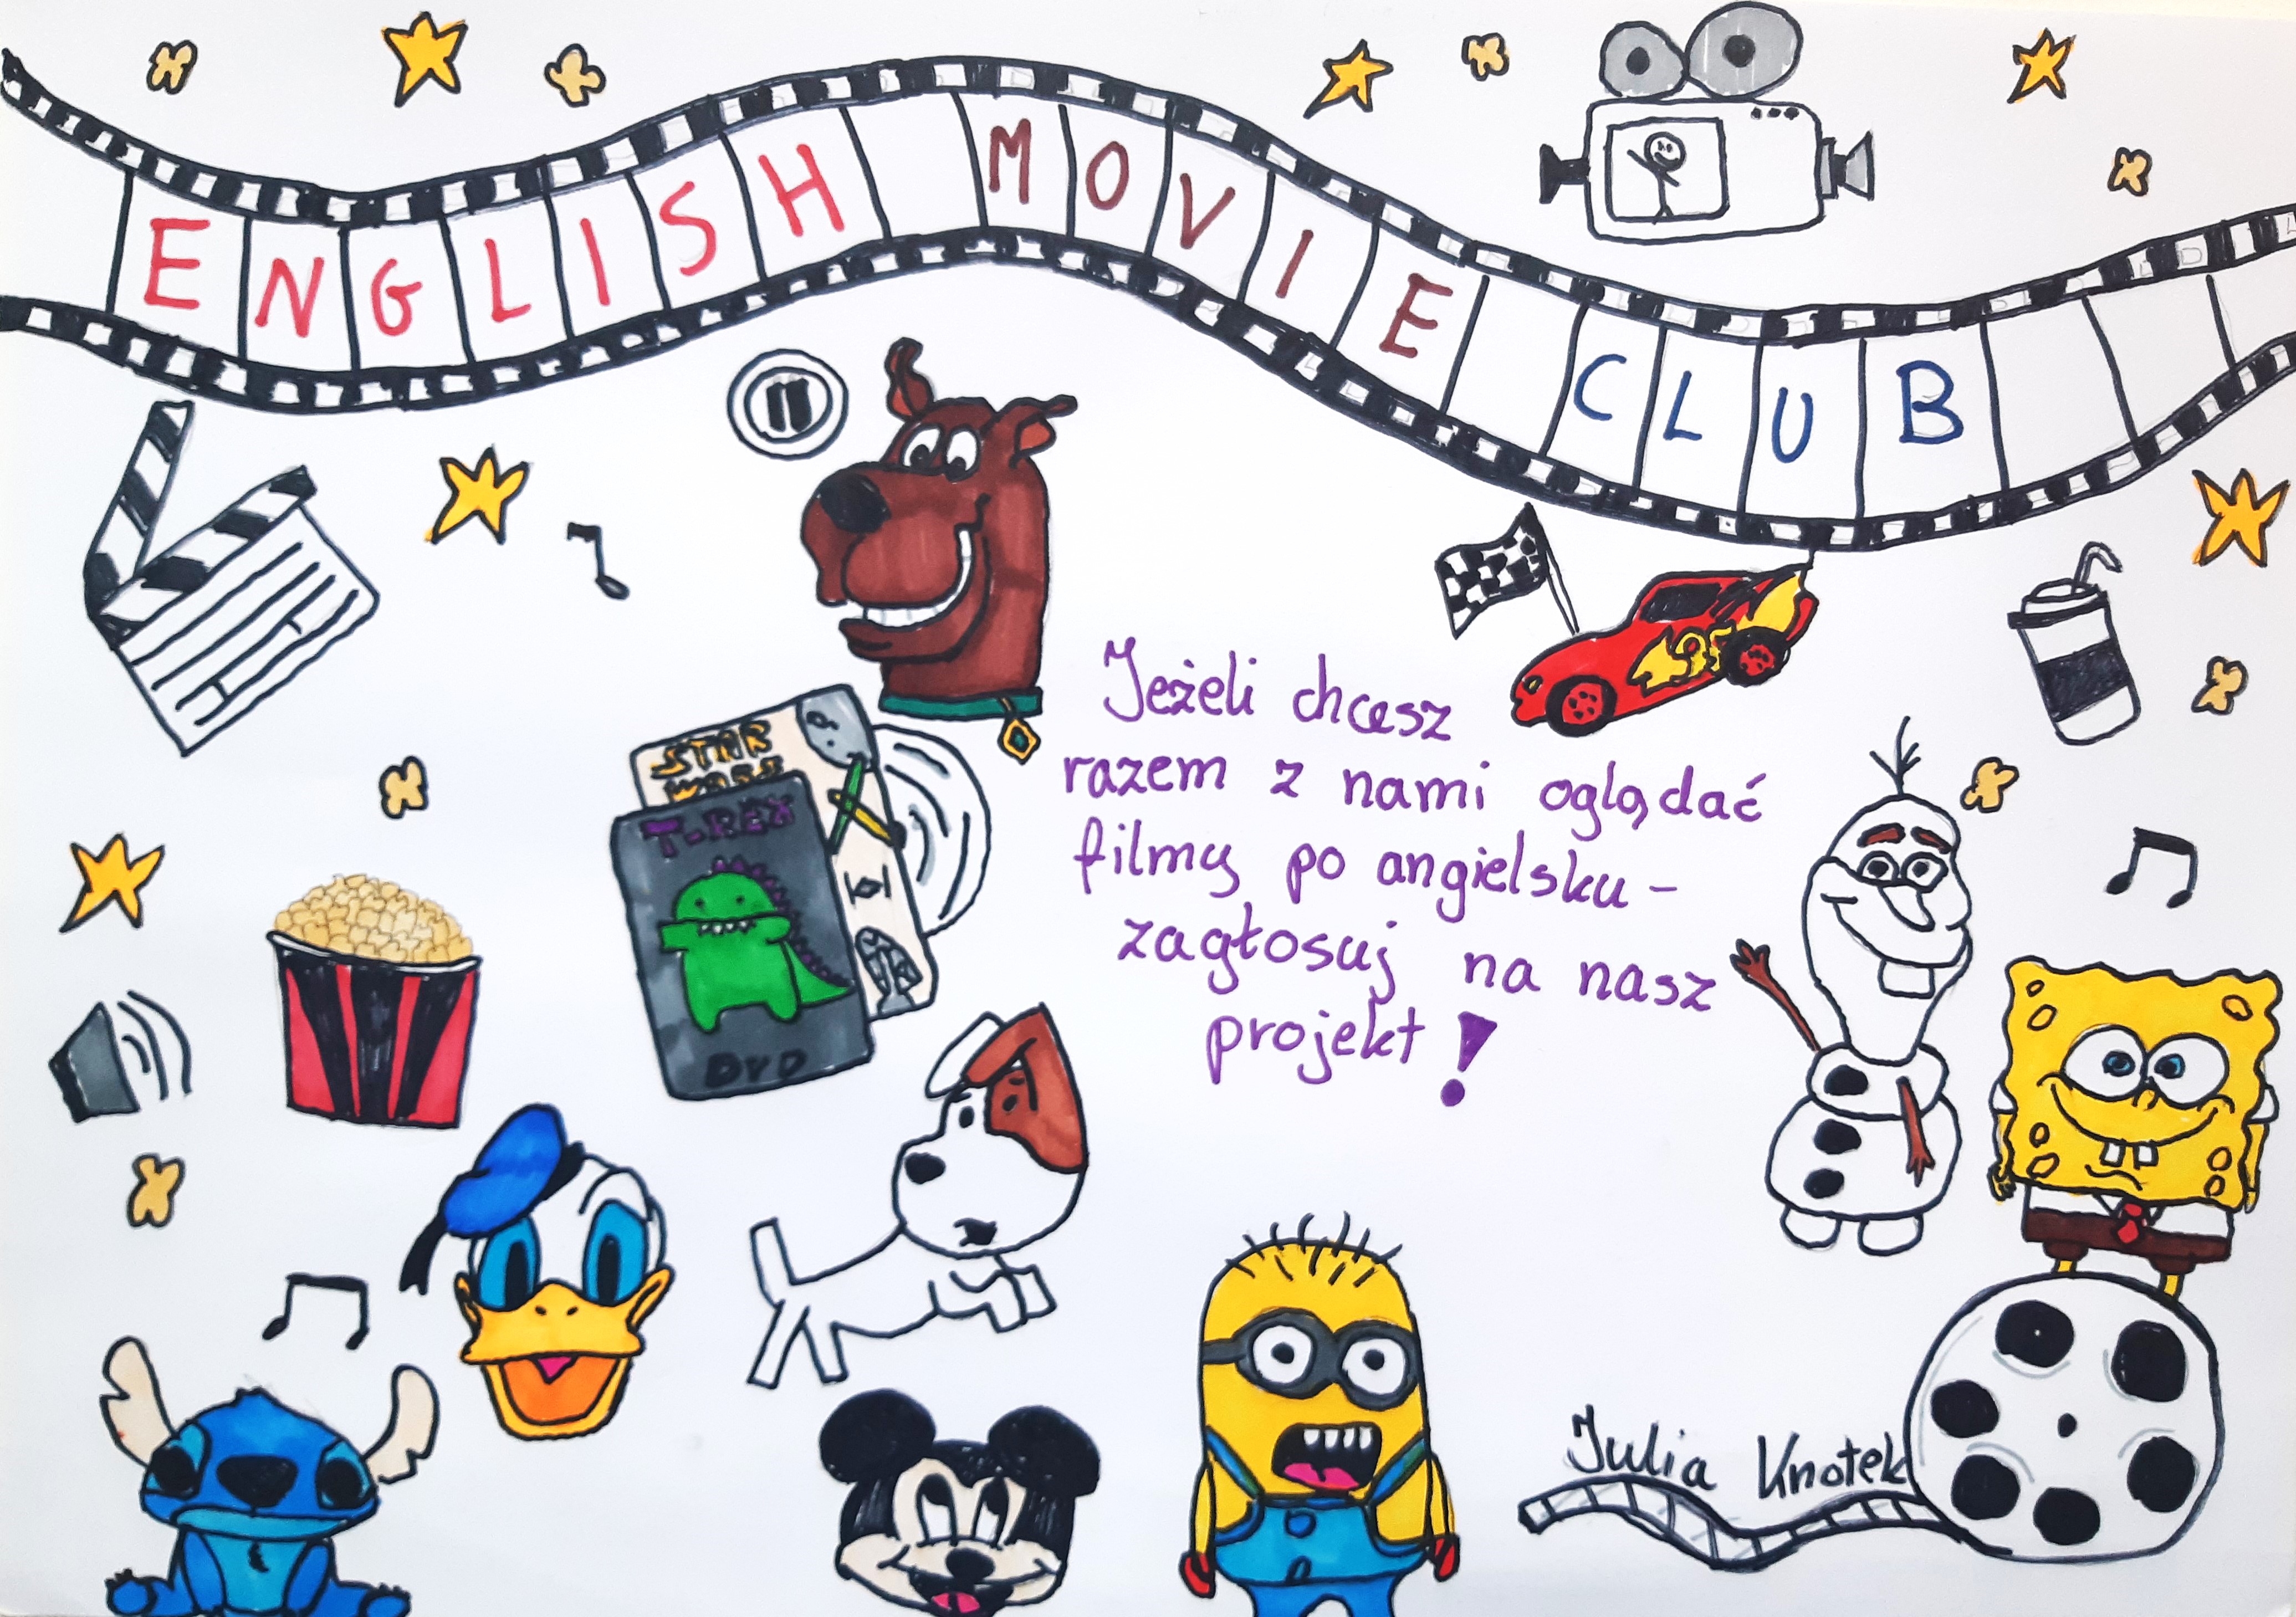 ENGLISH MOVIE CLUB
STAR
WARS
T-REX
DVD
95
Jeżeli chcesz
razem z nami oglądać
filmy po angielsku –
zagłosuj na nasz
projekt!
Julia Knotek